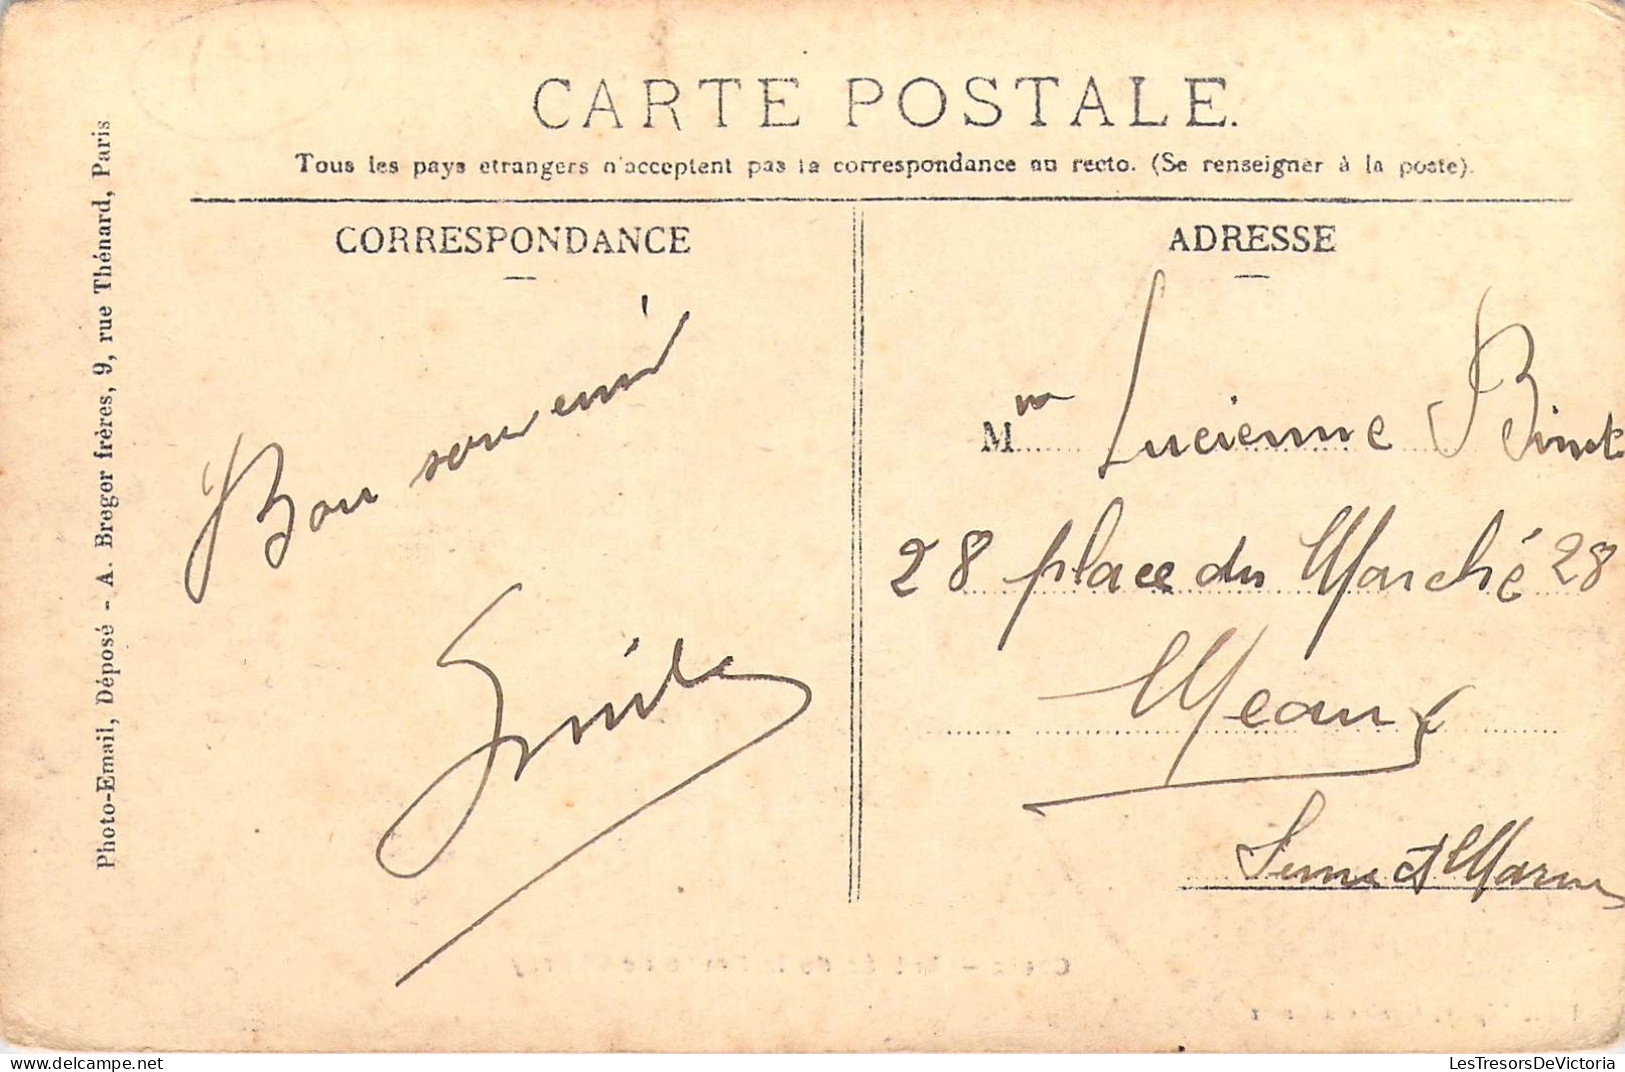 CARTE POSTALE.
Tous les pays etrangers n'acceptent pas la correspondance au recto. (Se renseigner à la poste).
Photo-Email, Déposé - A. Breger frères, 9, rue Thénard, Paris
CORRESPONDANCE
Bon souvenir
Emile
ADRESSE
Lucienne Binet
28 place du Marché 28
Meaux
Seine et Marne
LesTresorsDeVictoria